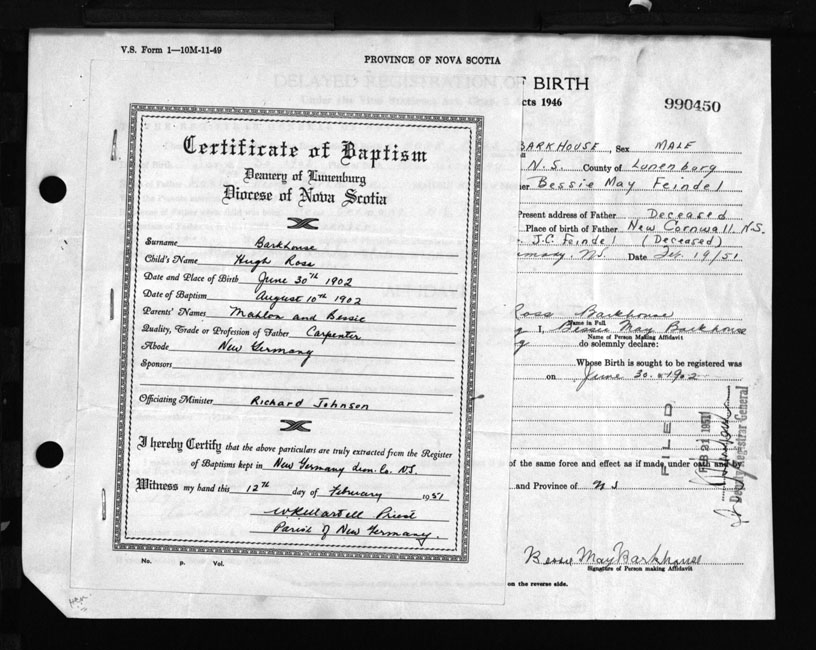 V.S. Form 1—10M-11-49
PROVINCE OF NOVA SCOTIA
DELAYED REGISTRATION OF BIRTH
cts 1946
990450
Certificate of Baptism
Deanery of Lunenburg
Diocese of Nova Scotia
Surname Barkhouse
Child's Name Hugh Ross
Date and Place of Birth June 30th 1902
Date of Baptism August 10th 1902
Parents' Names Mahlon and Bessie
Quality, Trade or Profession of Father Carpenter
Abode New Germany
Sponsors
Officiating Minister Richard Johnson
I hereby Certify that the above particulars are truly extracted from the Register
of Baptisms kept in New Germany Lun. Co. N.S.
Witness my hand this 12th day of February 1951
Priest
Parish of New Germany.
No. p. Vol.
BARKHOUSE, Sex MALE
N.S. County of Lunenburg
er Bessie May Feindel
Present address of Father Deceased
Place of birth of Father New Cornwall N.S.
J.C. Feindel (Deceased)
N.S. Date 19/51
Ross Barkhouse
Name in Full
I, Bessie May Barkhouse
Name of Person Making Affidavit
do solemnly declare:
Whose Birth is sought to be registered was
on June 30. 1902
FILED
FEB 21 1951
Deputy Registrar General
of the same force and effect as if made under oath and by
and Province of N S
Bessie May Barkhouse
Signature of Person making Affidavit
on the reverse side.